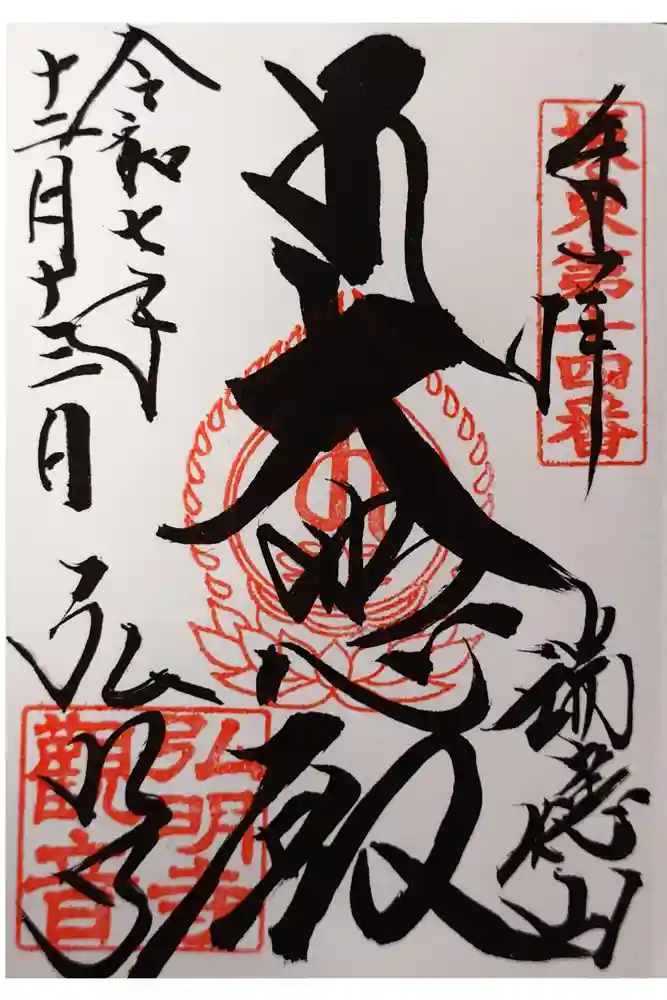 奉拝
坂東第十四番
瑞應山
大悲殿
弘明寺
觀音
令和七年
十二月十三日
弘明寺